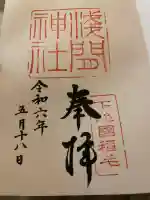 淺間
神社
下総國稲毛
奉拝
令和六年
五月十八日